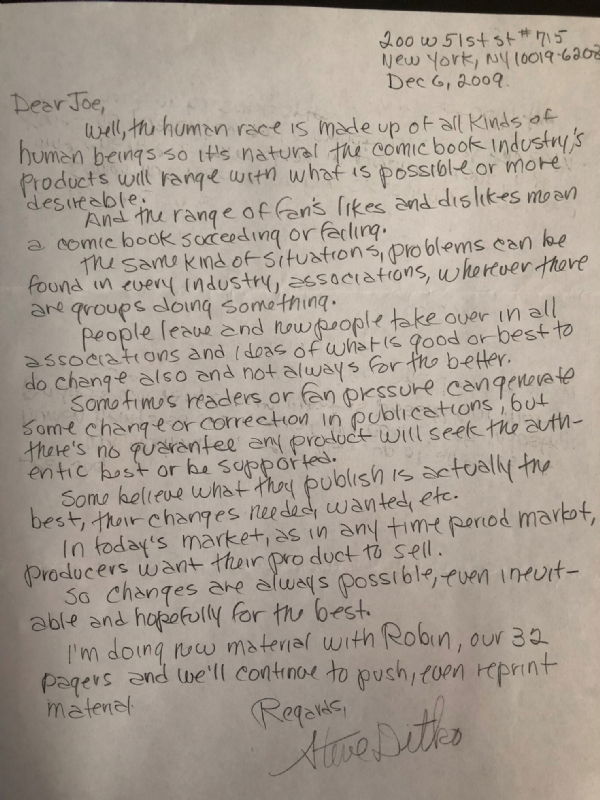 200 W 51st St # 715
New York, NY 10019-6208
Dec 6, 2009
Dear Joe,
Well, the human race is made up of all kinds of
human beings so it's natural the comic book industry's
products will range with what is possible or more
desireable.
And the range of fan's likes and dislikes mean
a comic book succeeding or failing.
The same kind of situations, problems can be
found in every industry, associations, wherever there
are groups doing something.
People leave and new people take over in all
associations and ideas of what is good or best to
do change also and not always for the better.
Sometimes readers or fan pressure can generate
some change or correction in publications, but
there's no guarantee any product will seek the auth-
entic best or be supported.
Some believe what they publish is actually the
best, their changes needed, wanted, etc.
In today's market, as in any time period market,
producers want their product to sell.
So changes are always possible, even inevit-
able and hopefully for the best.
I'm doing new material with Robin, our 32
pagers and we'll continue to push, even reprint
material.
Regards,
Steve Ditko